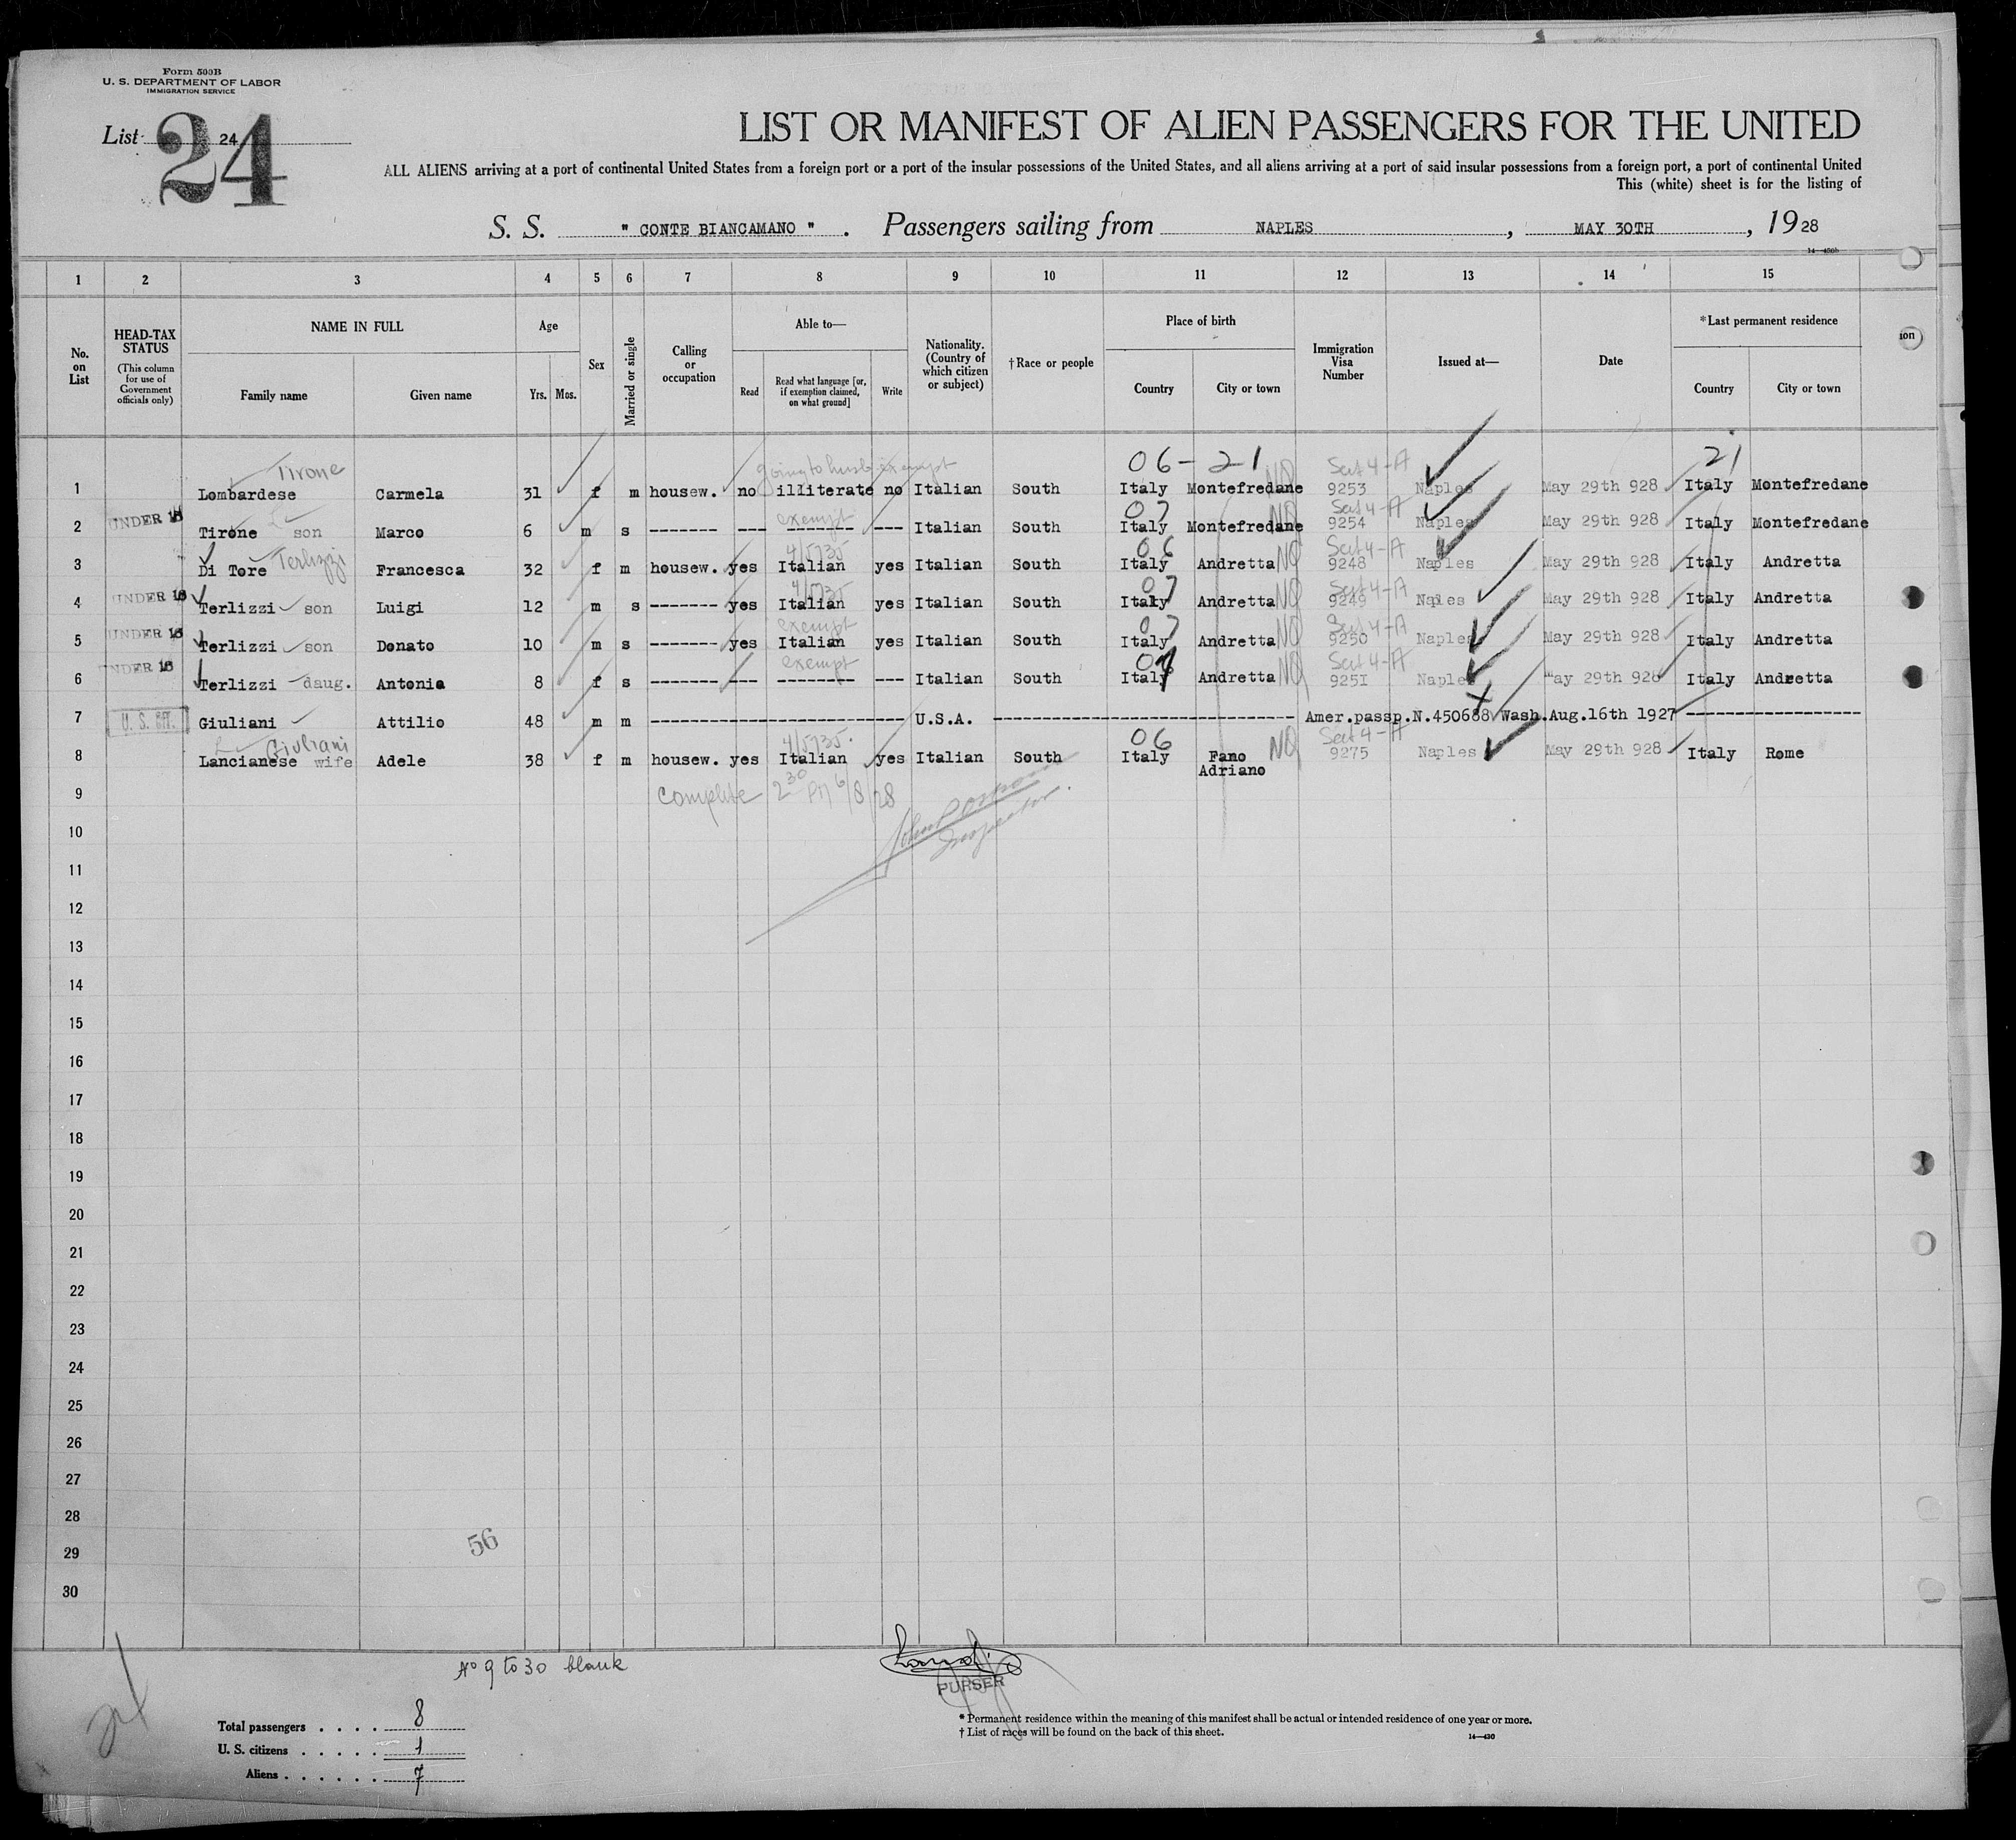 Form 500B
U. S. DEPARTMENT OF LABOR
IMMIGRATION SERVICE
List 24
24
LIST OR MANIFEST OF ALIEN PASSENGERS FOR THE UNITED
ALL ALIENS arriving at a port of continental United States from a foreign port or a port of the insular possessions of the United States, and all aliens arriving at a port of said insular possessions from a foreign port, a port of continental United
This (white) sheet is for the listing of
S. S. " CONTE BIANCAMANO " . Passengers sailing from NAPLES , MAY 30TH , 1928
14—430b
1 2 3 4 5 6 7 8 9 10 11 12 13 14 15
No. on List
HEAD-TAX STATUS
(This column for use of Government officials only)
NAME IN FULL
Family name Given name
Age
Yrs. Mos.
Sex
Married or single
Calling or occupation
Able to—
Read
Read what language [or, if exemption claimed, on what ground]
Write
Nationality. (Country of which citizen or subject)
†Race or people
Place of birth
Country City or town
Immigration Visa Number
Issued at—
Date
*Last permanent residence
Country City or town
ion
Tirone going to husb exempt 06-21 NQ Sect 4-A 21
1 Lombardese Carmela 31 f m housew. no illiterate no Italian South Italy Montefredane 9253 Naples May 29th 928 Italy Montefredane
UNDER 16 exempt 07 NQ Sect 4-A
2 Tirone son Marco 6 m s ------- --- ------- --- Italian South Italy Montefredane 9254 Naples May 29th 928 Italy Montefredane
Terlizzi 4/5735 06 NQ Sect 4-A
3 Di Tore Francesca 32 f m housew. yes Italian yes Italian South Italy Andretta 9248 Naples May 29th 928 Italy Andretta
UNDER 16 4/5735 07 NQ Sect 4-A
4 Terlizzi son Luigi 12 m s ------- yes Italian yes Italian South Italy Andretta 9249 Naples May 29th 928 Italy Andretta
UNDER 16 exempt 07 NQ Sect 4-A
5 Terlizzi son Donato 10 m s ------- yes Italian yes Italian South Italy Andretta 9250 Naples May 29th 928 Italy Andretta
UNDER 16 exempt NQ Sect 4-A
6 Terlizzi daug. Antonia 8 f s ------- --- -------- --- Italian South Italy Andretta 9251 Naples May 29th 928 Italy Andretta
7 Giuliani Attilio 48 m m ------------------------- U.S.A. ------------------------------ Amer.passp.N.450688 Wash.Aug.16th 1927 ------------------
Giuliani 4/5735. 06 NQ Sect 4-A
8 Lancianese wife Adele 38 f m housew. yes Italian yes Italian South Italy Fano Adriano 9275 Naples May 29th 928 Italy Rome
9 Complete 2 30 PM 6/8/28
10
Inspector.
11
12
13
14
15
16
17
18
19
20
21
22
23
24
25
26
27
28
56
29
30
No 9 to 30 blank
PURSER
Total passengers . . . . 8
U. S. citizens . . . . . 1
Aliens . . . . . . 7
* Permanent residence within the meaning of this manifest shall be actual or intended residence of one year or more.
† List of races will be found on the back of this sheet.
14—430